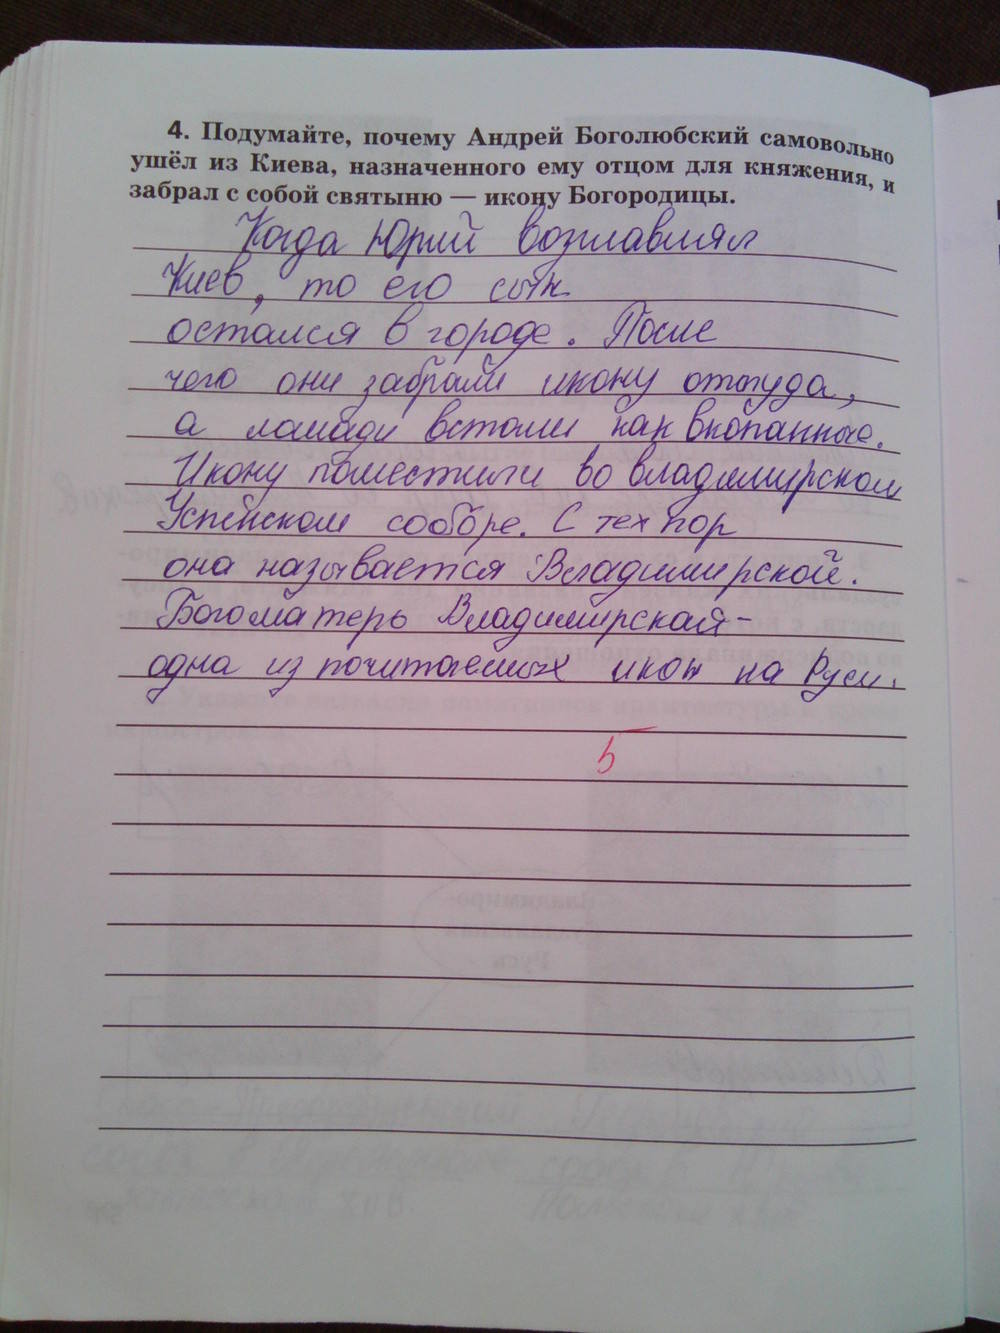 4. Подумайте, почему Андрей Боголюбский самовольно
ушёл из Киева, назначенного ему отцом для княжения, и
забрал с собой святыню — икону Богородицы.
Когда Юрий возглавлял
Киев, то его сын
остался в городе. После
чего они забрали икону оттуда,
а лошади встали как вкопанные.
Икону поместили во владимирском
Успенском соборе. С тех пор
она называется Владимирской.
Богоматерь Владимирская-
одна из почитаемых икон на Руси.
5